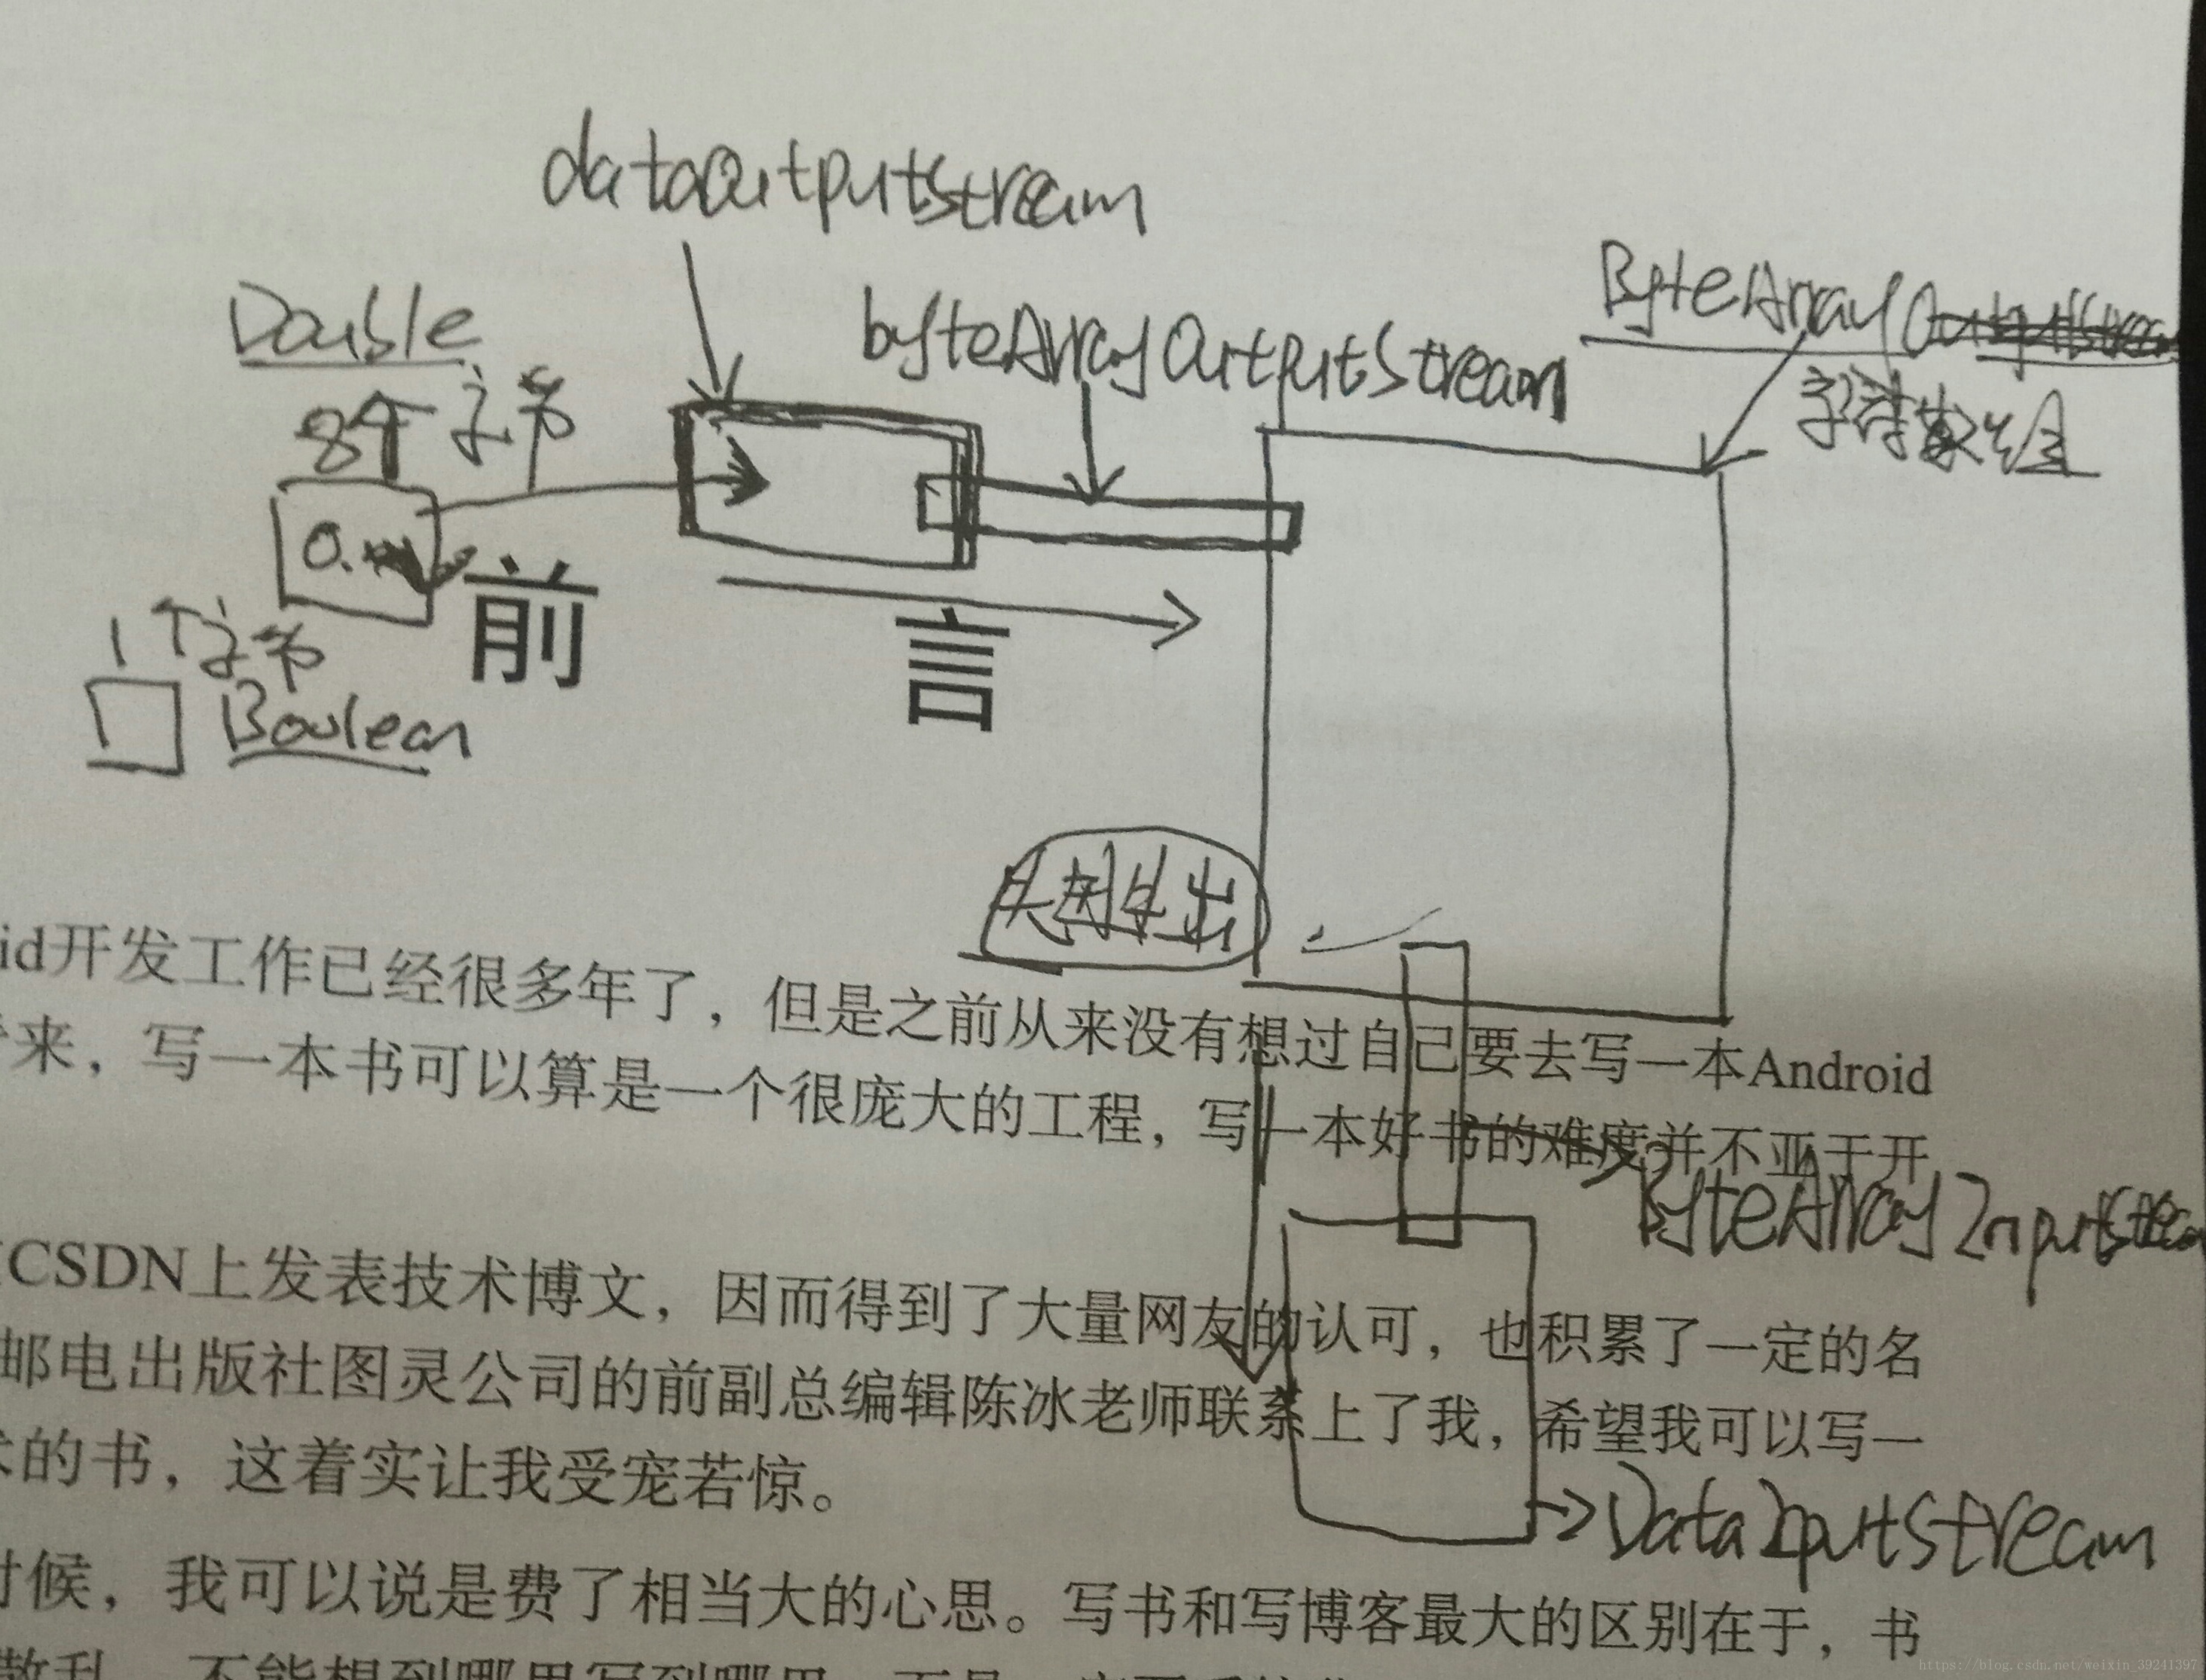 dataOutputStream
ByteArray
Double
byteArrayOutputStream
8个字节
字节数组
0.
前言
1个字节
Boolean
先进先出
id开发工作已经很多年了，但是之前从来没有想过自己要去写一本Android
来，写一本书可以算是一个很庞大的工程，写一本好书的难度并不亚于开
ByteArrayInputStream
CSDN上发表技术博文，因而得到了大量网友的认可，也积累了一定的名
邮电出版社图灵公司的前副总编辑陈冰老师联系上了我，希望我可以写一
的书，这着实让我受宠若惊。
DataInputStream
时候，我可以说是费了相当大的心思。写书和写博客最大的区别在于，书
散乱，不能想到哪里写到哪里，而是
https://blog.csdn.net/weixin_39241397